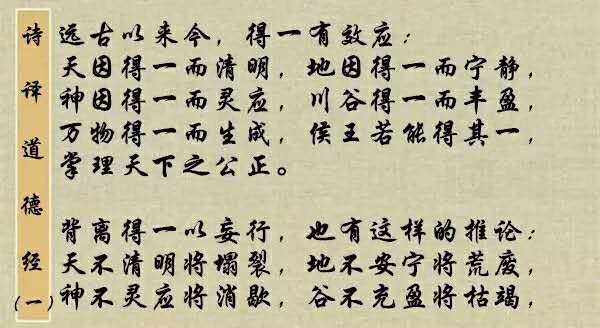 诗译道德经(一)
远古以来今，得一有效应：
天因得一而清明，地因得一而宁静，
神因得一而灵应，川谷得一而丰盈，
万物得一而生成，侯王若能得其一，
掌理天下之公正。
背离得一以妄行，也有这样的推论：
天不清明将塌裂，地不安宁将荒废，
神不灵应将消歇，谷不充盈将枯竭，